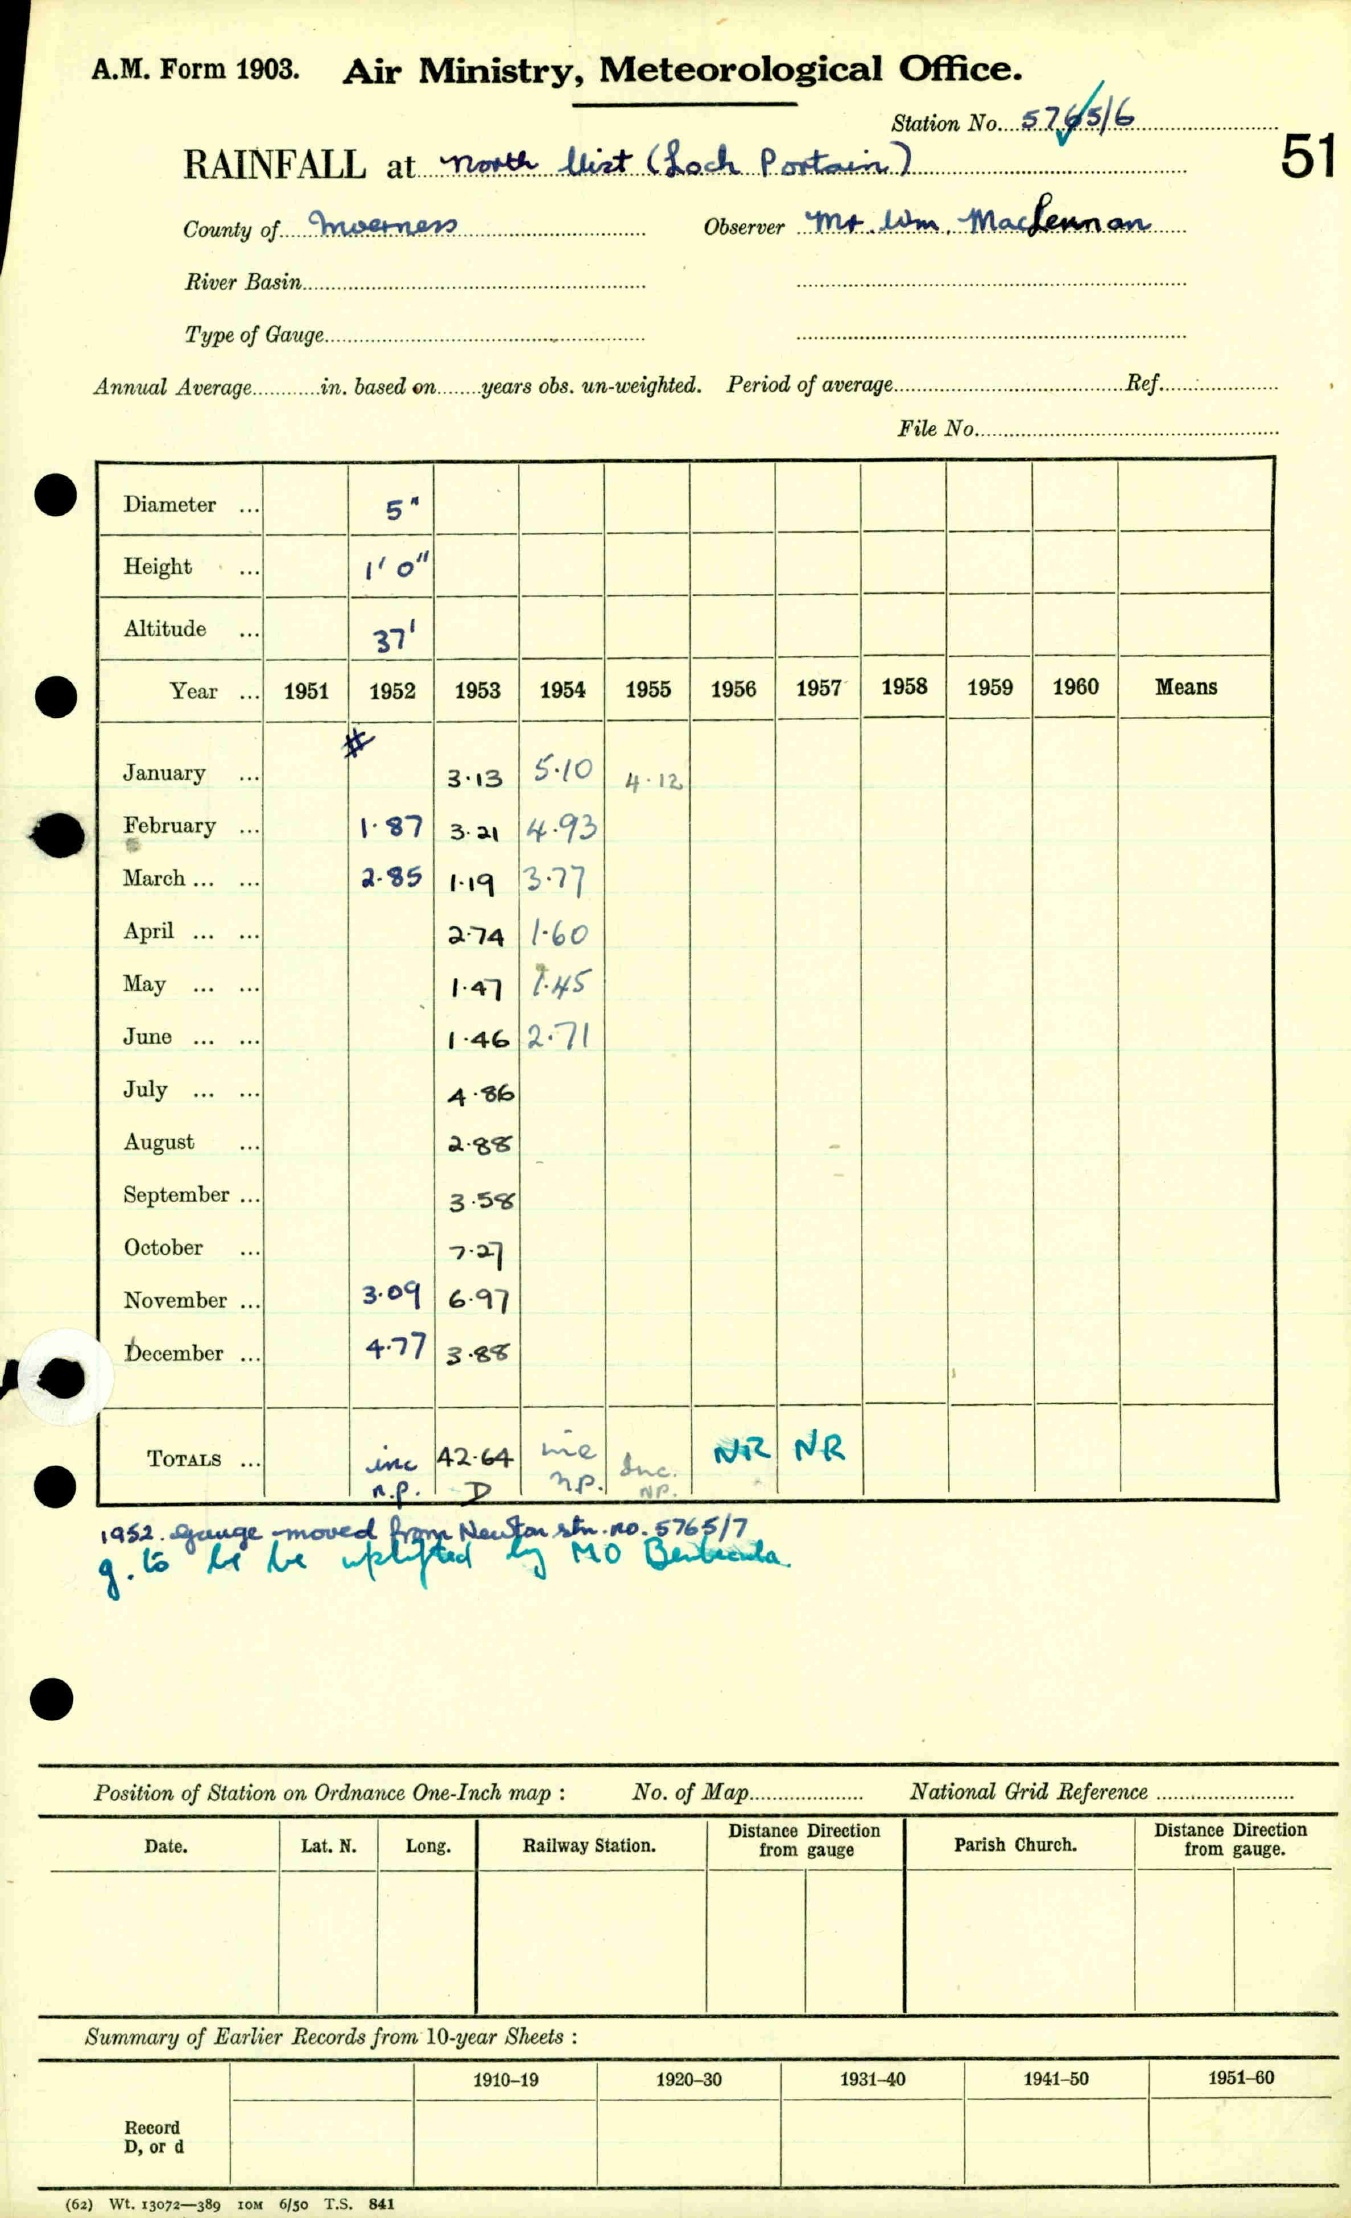 A.M. Form 1903. Air Ministry, Meteorological Office.
Station No. 5765/6
51
RAINFALL at North Uist (Loch Portain)
County of Inverness Observer Mr. Wm. MacLennan
River Basin
Type of Gauge
Annual Average in. based on years obs. un-weighted. Period of average Ref.
File No.
Diameter ... 5"
Height ... 1' 0"
Altitude ... 37'
Year ... 1951 1952 1953 1954 1955 1956 1957 1958 1959 1960 Means
#
January ... 3.13 5.10 4.12
February ... 1.87 3.21 4.93
March ... ... 2.85 1.19 3.77
April ... ... 2.74 1.60
May ... ... 1.47 1.45
June ... ... 1.46 2.71
July ... ... 4.86
August ... 2.88
September ... 3.58
October ... 7.27
November ... 3.09 6.97
December ... 4.77 3.88
TOTALS ... inc 42.64 inc Inc. NR NR
n.p. D n.p. NP.
1952. Gauge moved from Newton stn. no. 5765/7
g. to be be uplifted by MO Benbecula
Position of Station on Ordnance One-Inch map : No. of Map National Grid Reference
Date. Lat. N. Long. Railway Station. Distance Direction from gauge Parish Church. Distance Direction from gauge.
Summary of Earlier Records from 10-year Sheets :
1910–19 1920–30 1931–40 1941–50 1951–60
Record
D, or d
(62) Wt. 13072—389 10M 6/50 T.S. 841